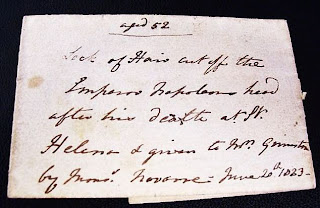 aged 52
Lock of Hair cut off the
Emperor Napoleons head
after his death at St.
Helena & given to Mrs.
by Monsr. Navarre - June 20th 1823 -